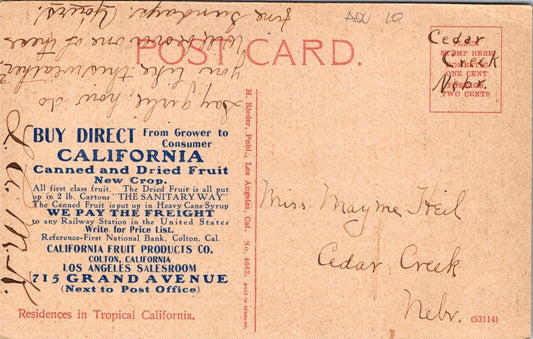 ADV 10
POST CARD.
PLACE
STAMP HERE
DOMESTIC
ONE CENT
FOREIGN
TWO CENTS
Cedar
Creek
Nebr.
Say girlie, how do
you like this weather?
Will
one of these
fine Sundays. Yours.
BUY DIRECT From Grower to
Consumer
CALIFORNIA
Canned and Dried Fruit
New Crop.
All first class fruit. The Dried Fruit is all put
up in 2 lb. Cartons "THE SANITARY WAY"
The Canned Fruit is put up in Heavy Cane Syrup
WE PAY THE FREIGHT
to any Railway Station in the United States
Write for Price List.
Reference-First National Bank. Colton. Cal.
CALIFORNIA FRUIT PRODUCTS CO.
COLTON, CALIFORNIA
LOS ANGELES SALESROOM
715 GRAND AVENUE
(Next to Post Office)
Residences in Tropical California.
M. Rieder, Publ., Los Angeles, Cal. No. 4663. MADE IN GERMANY.
Miss Mayme Heil
Cedar Creek
Nebr.
(53114)